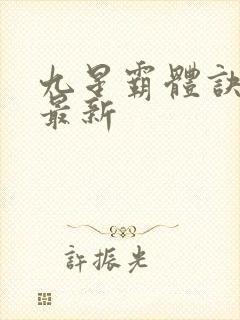 九星霸體訣
最新
許振光